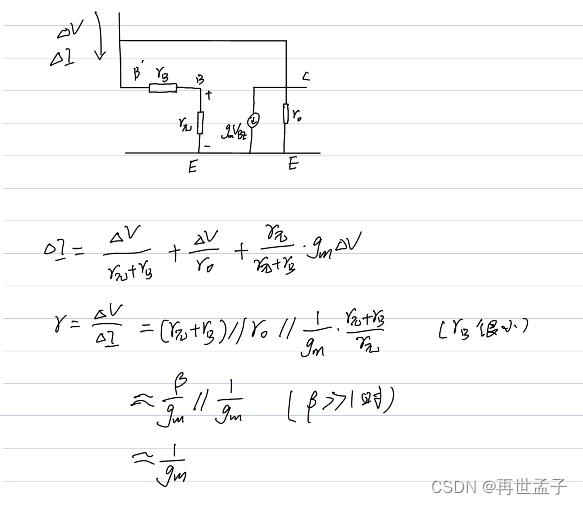 ΔV
ΔI
B' r_B B C
+
r_π g_m V_BE r_o
-
E E
ΔI = ΔV/(r_π+r_B) + ΔV/r_o + r_π/(r_π+r_B) · g_m ΔV
r = ΔV/ΔI = (r_π+r_B) // r_o // 1/g_m · (r_π+r_B)/r_π (r_B 很小)
≈ β/g_m // 1/g_m (β>>1时)
≈ 1/g_m
CSDN @再世孟子